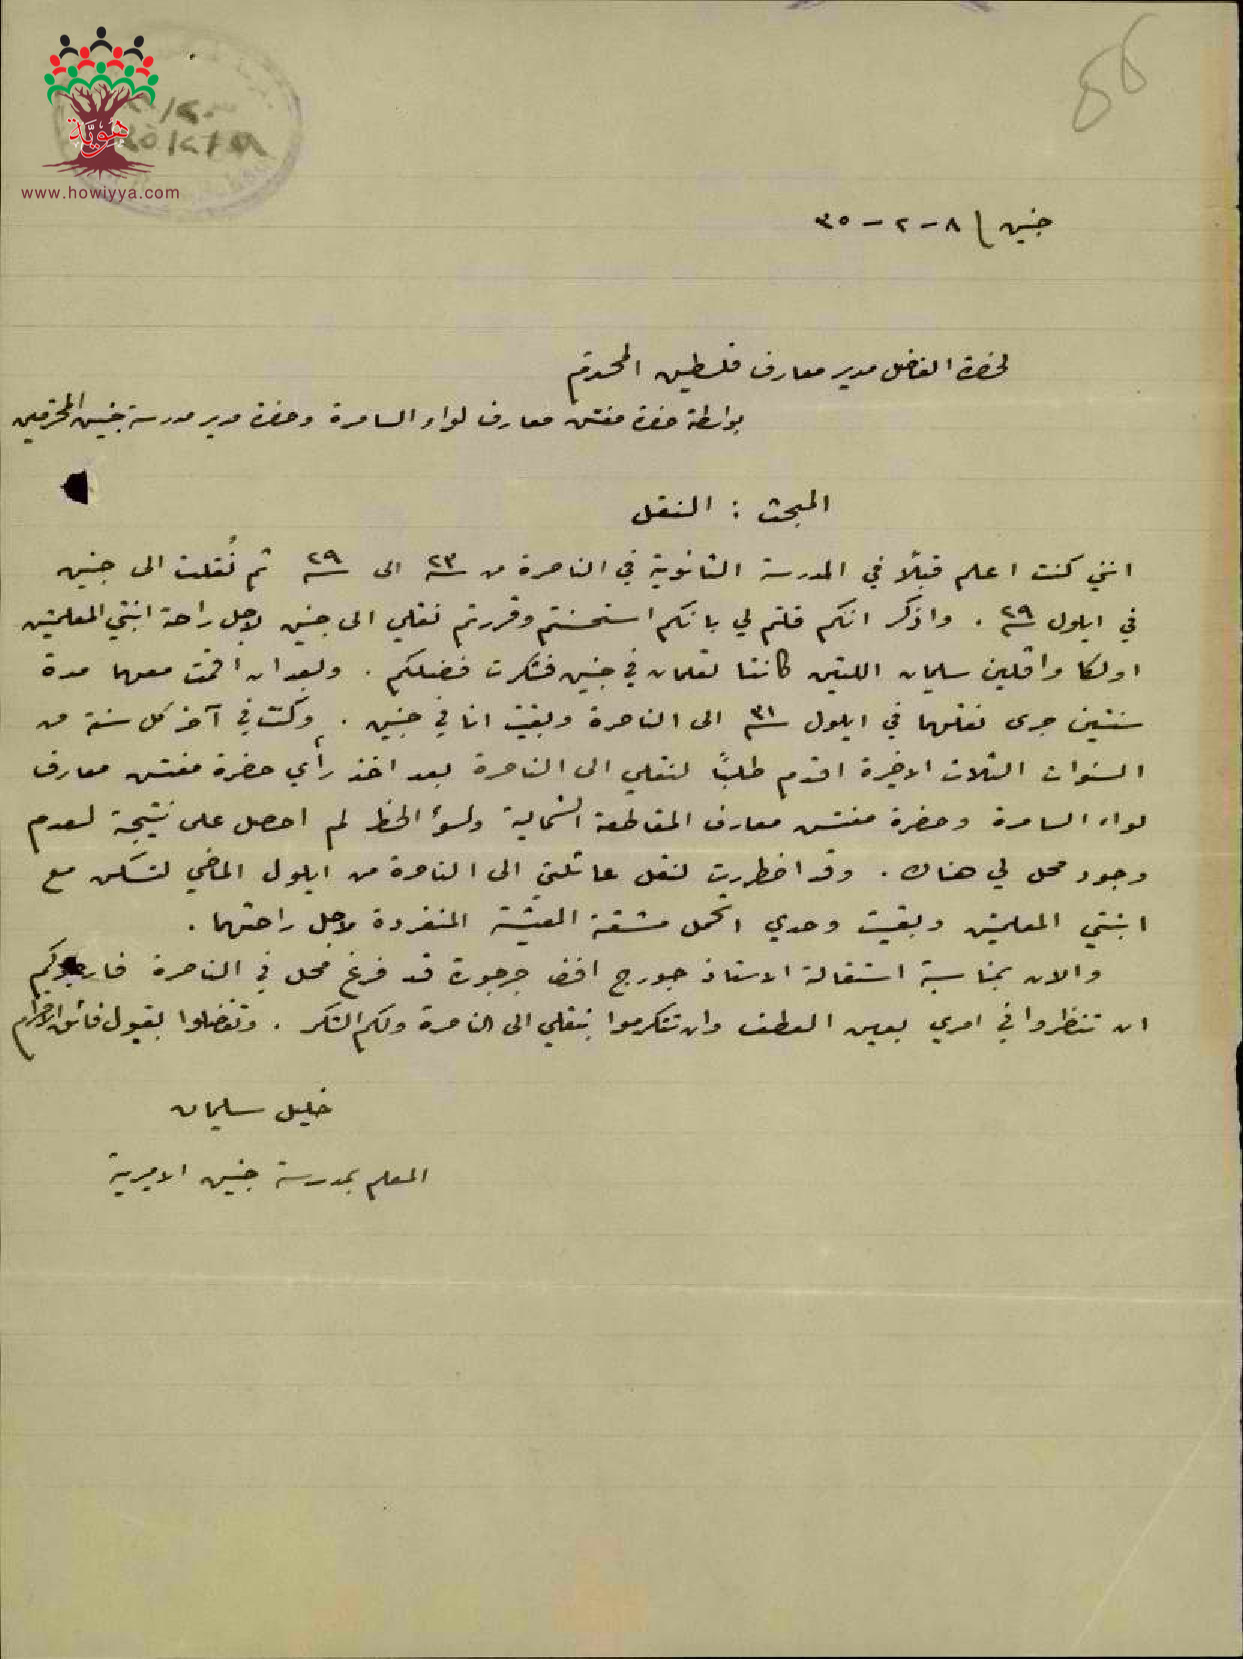 هويّة
www.howiyya.com
جنين / ٨-٢-٣٥
لحضرة الفاضل مدير معارف فلسطين المحترم
بواسطة حضرة مفتش معارف لواء السامرة وحضرة مدير مدرسة جنين المحترمين
المبحث : النقل
انني كنت اعلم قبلًا في المدرسة الثانوية في الناصرة من سنة ٢٣ الى سنة ٢٩ ثم نُقلت الى جنين
في ايلول سنة ٢٩ . واذكر انكم قلتم لي بانكم استحسنتم وقررتم نقلي الى جنين لاجل راحة ابنتي المعلمتين
اولكا وافلين سليمان اللتين كانتا تعلمان في جنين فشكرت فضلكم . وبعد ان اقمت معهما مدة
سنتين جرى نقلهما في ايلول سنة ٣١ الى الناصرة وبقيت انا في جنين . وكنت في آخر كل سنة من
السنوات الثلاث الاخيرة اقدم طلبًا لنقلي الى الناصرة بعد اخذ رأي حضرة مفتش معارف
لواء السامرة وحضرة مفتش معارف المقاطعة الشمالية ولسوء الحظ لم احصل على نتيجة لعدم
وجود محل لي هناك . وقد اضطررت لنقل عائلتي الى الناصرة من ايلول الماضي لتسكن مع
ابنتي المعلمتين وبقيت وحدي اتحمل مشقة المعيشة المنفردة لاجل راحتهما .
والان بمناسبة استقالة الاستاذ جورج افندي جرجورة قد فرغ محل في الناصرة فارجوكم
ان تنظروا في امري بعين العطف وان تتكرموا بنقلي الى الناصرة ولكم الشكر . وتفضلوا بقبول فائق الاحترام
خليل سليمان
المعلم بمدرسة جنين الاميرية